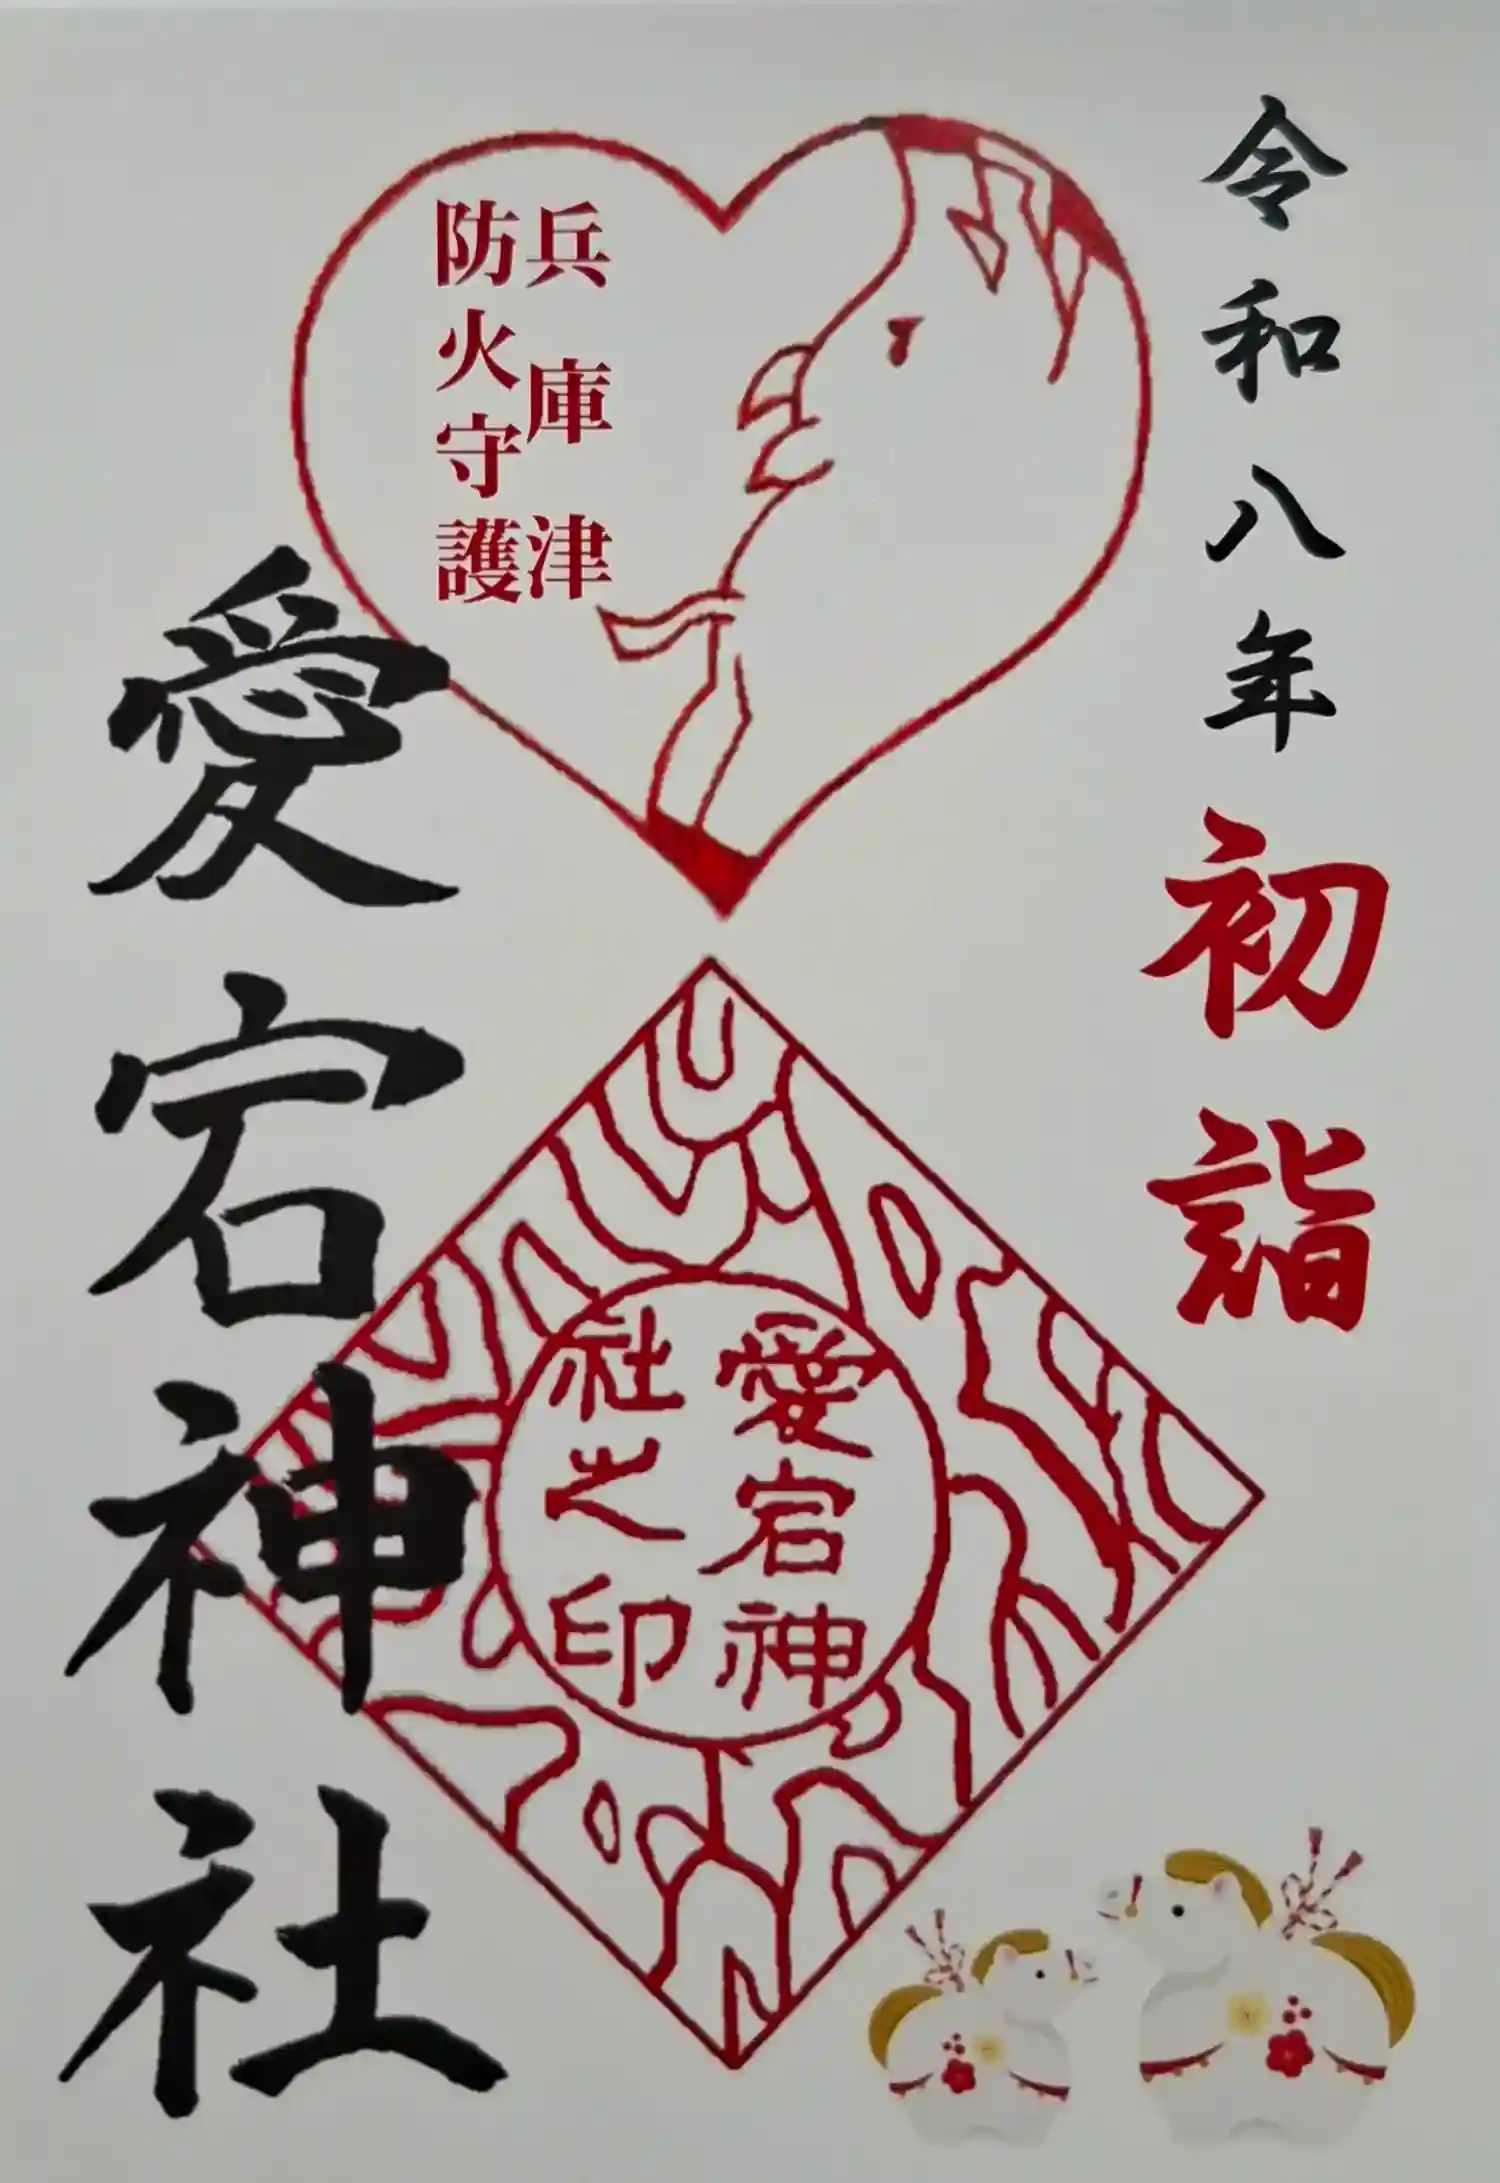 令和八年
初詣
兵庫津
防火守護
愛宕神社
愛宕神
社之印